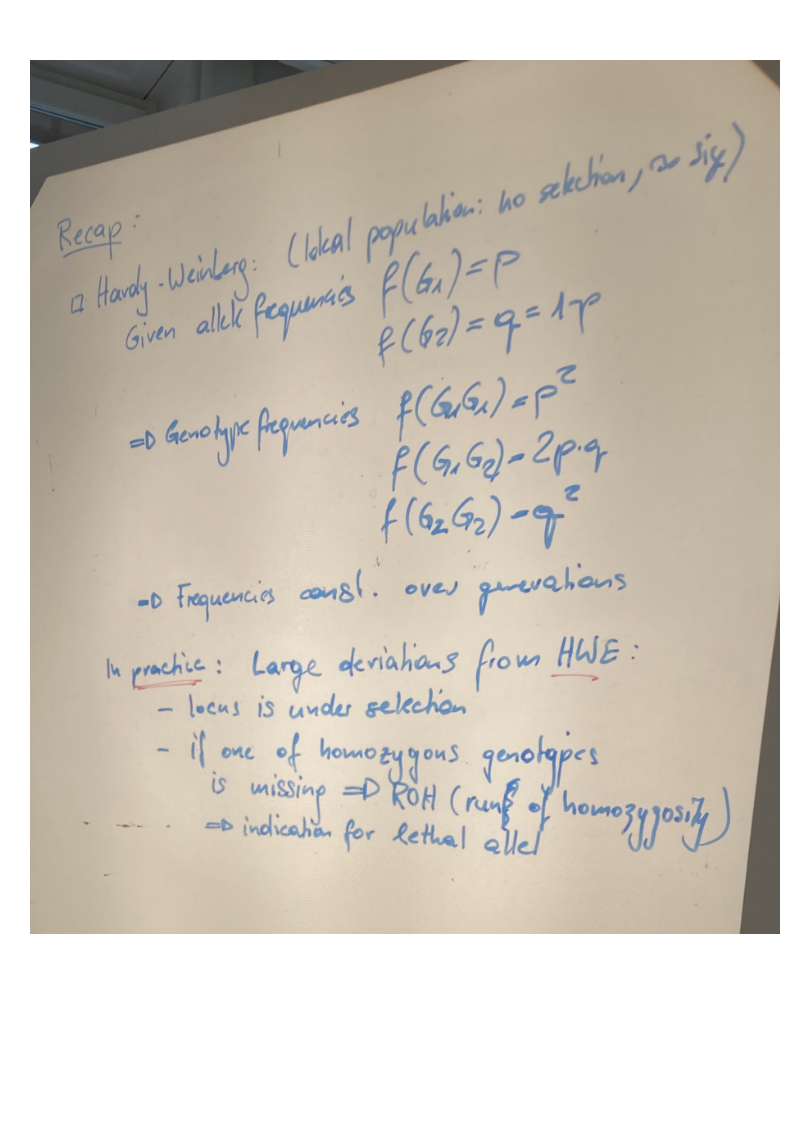 Recap:
□ Hardy-Weinberg: (lokal population: no selection, ∞ size)
Given allele frequencies f(G₁) = p
f(G₂) = q = 1-p
=> Genotype frequencies f(G₁G₁) = p²
f(G₁G₂) = 2p·q
f(G₂G₂) = q²
=> Frequencies const. over generations
In practice: Large deviations from HWE:
- locus is under selection
- if one of homozygous genotypes
is missing => ROH (runs of homozygosity)
=> indication for lethal allel